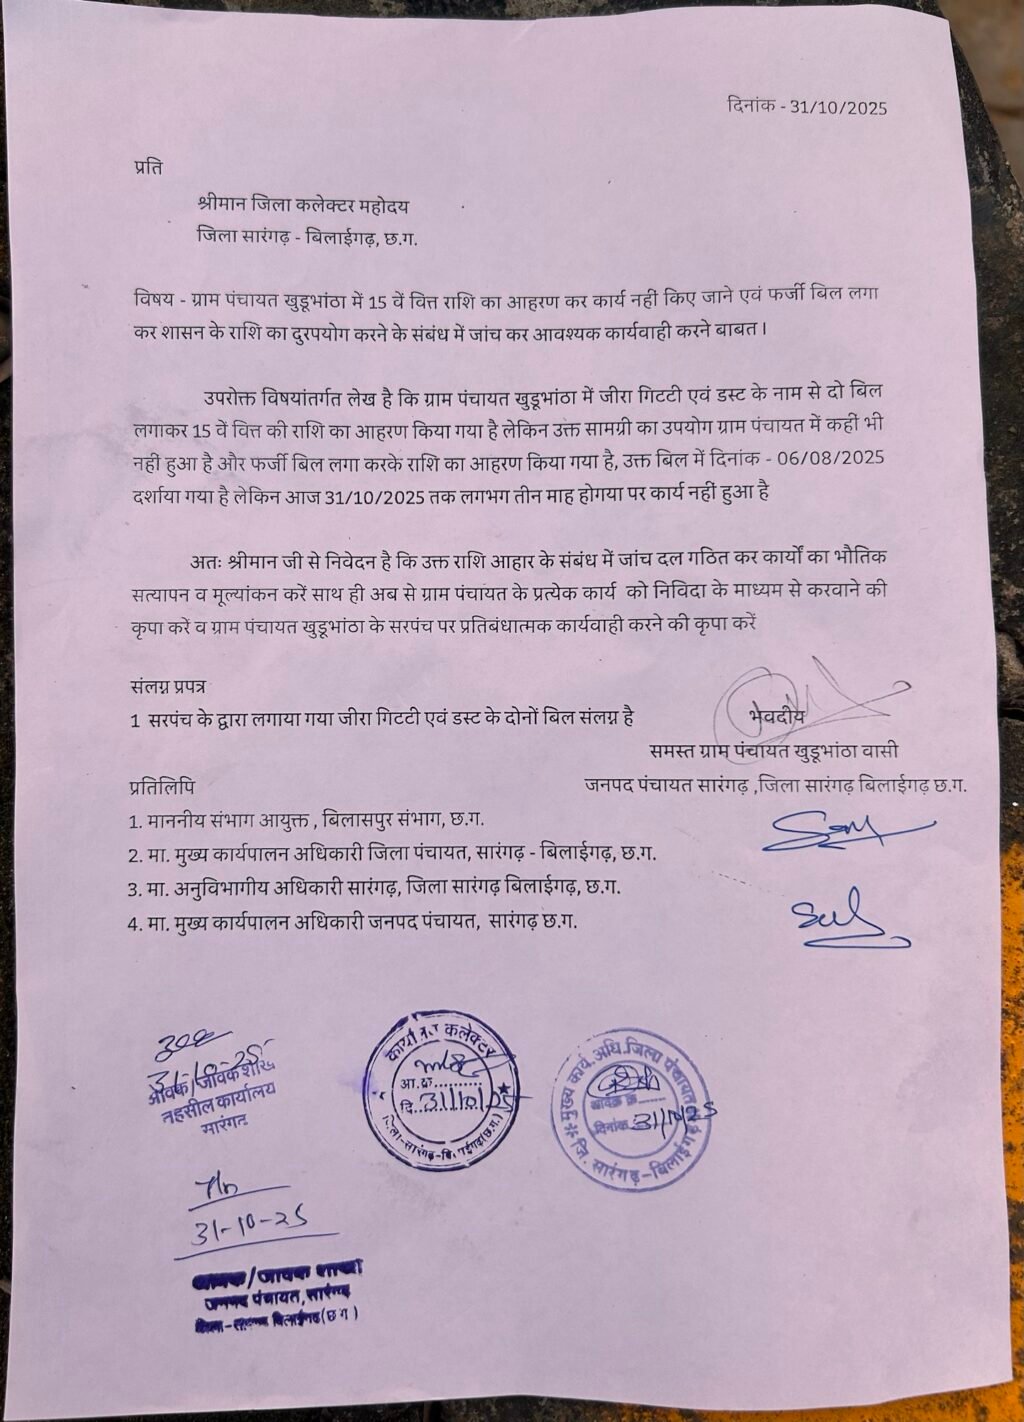 दिनांक - 31/10/2025
प्रति
श्रीमान जिला कलेक्टर महोदय
जिला सारंगढ़ - बिलाईगढ़, छ.ग.
विषय - ग्राम पंचायत खुडूभांठा में 15 वें वित्त राशि का आहरण कर कार्य नहीं किए जाने एवं फर्जी बिल लगा
कर शासन के राशि का दुरपयोग करने के संबंध में जांच कर आवश्यक कार्यवाही करने बाबत।
उपरोक्त विषयांतर्गत लेख है कि ग्राम पंचायत खुडूभांठा में जीरा गिटटी एवं डस्ट के नाम से दो बिल
लगाकर 15 वें वित्त की राशि का आहरण किया गया है लेकिन उक्त सामग्री का उपयोग ग्राम पंचायत में कहीं भी
नहीं हुआ है और फर्जी बिल लगा करके राशि का आहरण किया गया है, उक्त बिल में दिनांक - 06/08/2025
दर्शाया गया है लेकिन आज 31/10/2025 तक लगभग तीन माह होगया पर कार्य नहीं हुआ है
अतः श्रीमान जी से निवेदन है कि उक्त राशि आहार के संबंध में जांच दल गठित कर कार्यों का भौतिक
सत्यापन व मूल्यांकन करें साथ ही अब से ग्राम पंचायत के प्रत्येक कार्य को निविदा के माध्यम से करवाने की
कृपा करें व ग्राम पंचायत खुडूभांठा के सरपंच पर प्रतिबंधात्मक कार्यवाही करने की कृपा करें
संलग्न प्रपत्र
1 सरपंच के द्वारा लगाया गया जीरा गिटटी एवं डस्ट के दोनों बिल संलग्न है
भवदीय
समस्त ग्राम पंचायत खुडूभांठा वासी
जनपद पंचायत सारंगढ़ ,जिला सारंगढ़ बिलाईगढ़ छ.ग.
प्रतिलिपि
1. माननीय संभाग आयुक्त , बिलासपुर संभाग, छ.ग.
2. मा. मुख्य कार्यपालन अधिकारी जिला पंचायत, सारंगढ़ - बिलाईगढ़, छ.ग.
3. मा. अनुविभागीय अधिकारी सारंगढ़, जिला सारंगढ़ बिलाईगढ़, छ.ग.
4. मा. मुख्य कार्यपालन अधिकारी जनपद पंचायत, सारंगढ़ छ.ग.
31-10-25
आवक/जावक शाखा
तहसील कार्यालय
कलेक्टर
आ.क्र..........
दि..31/10/25
जिला-सारंगढ़-
मुख्य कार्य. अधि. जिला पंचायत
आवक क्र.
दिनांक 31/10/25
जि. सारंगढ़-बिलाईगढ़
31-10-25
आवक/जावक शाखा
जनपद पंचायत, सारंगढ़
बिलाईगढ़(छ.ग)